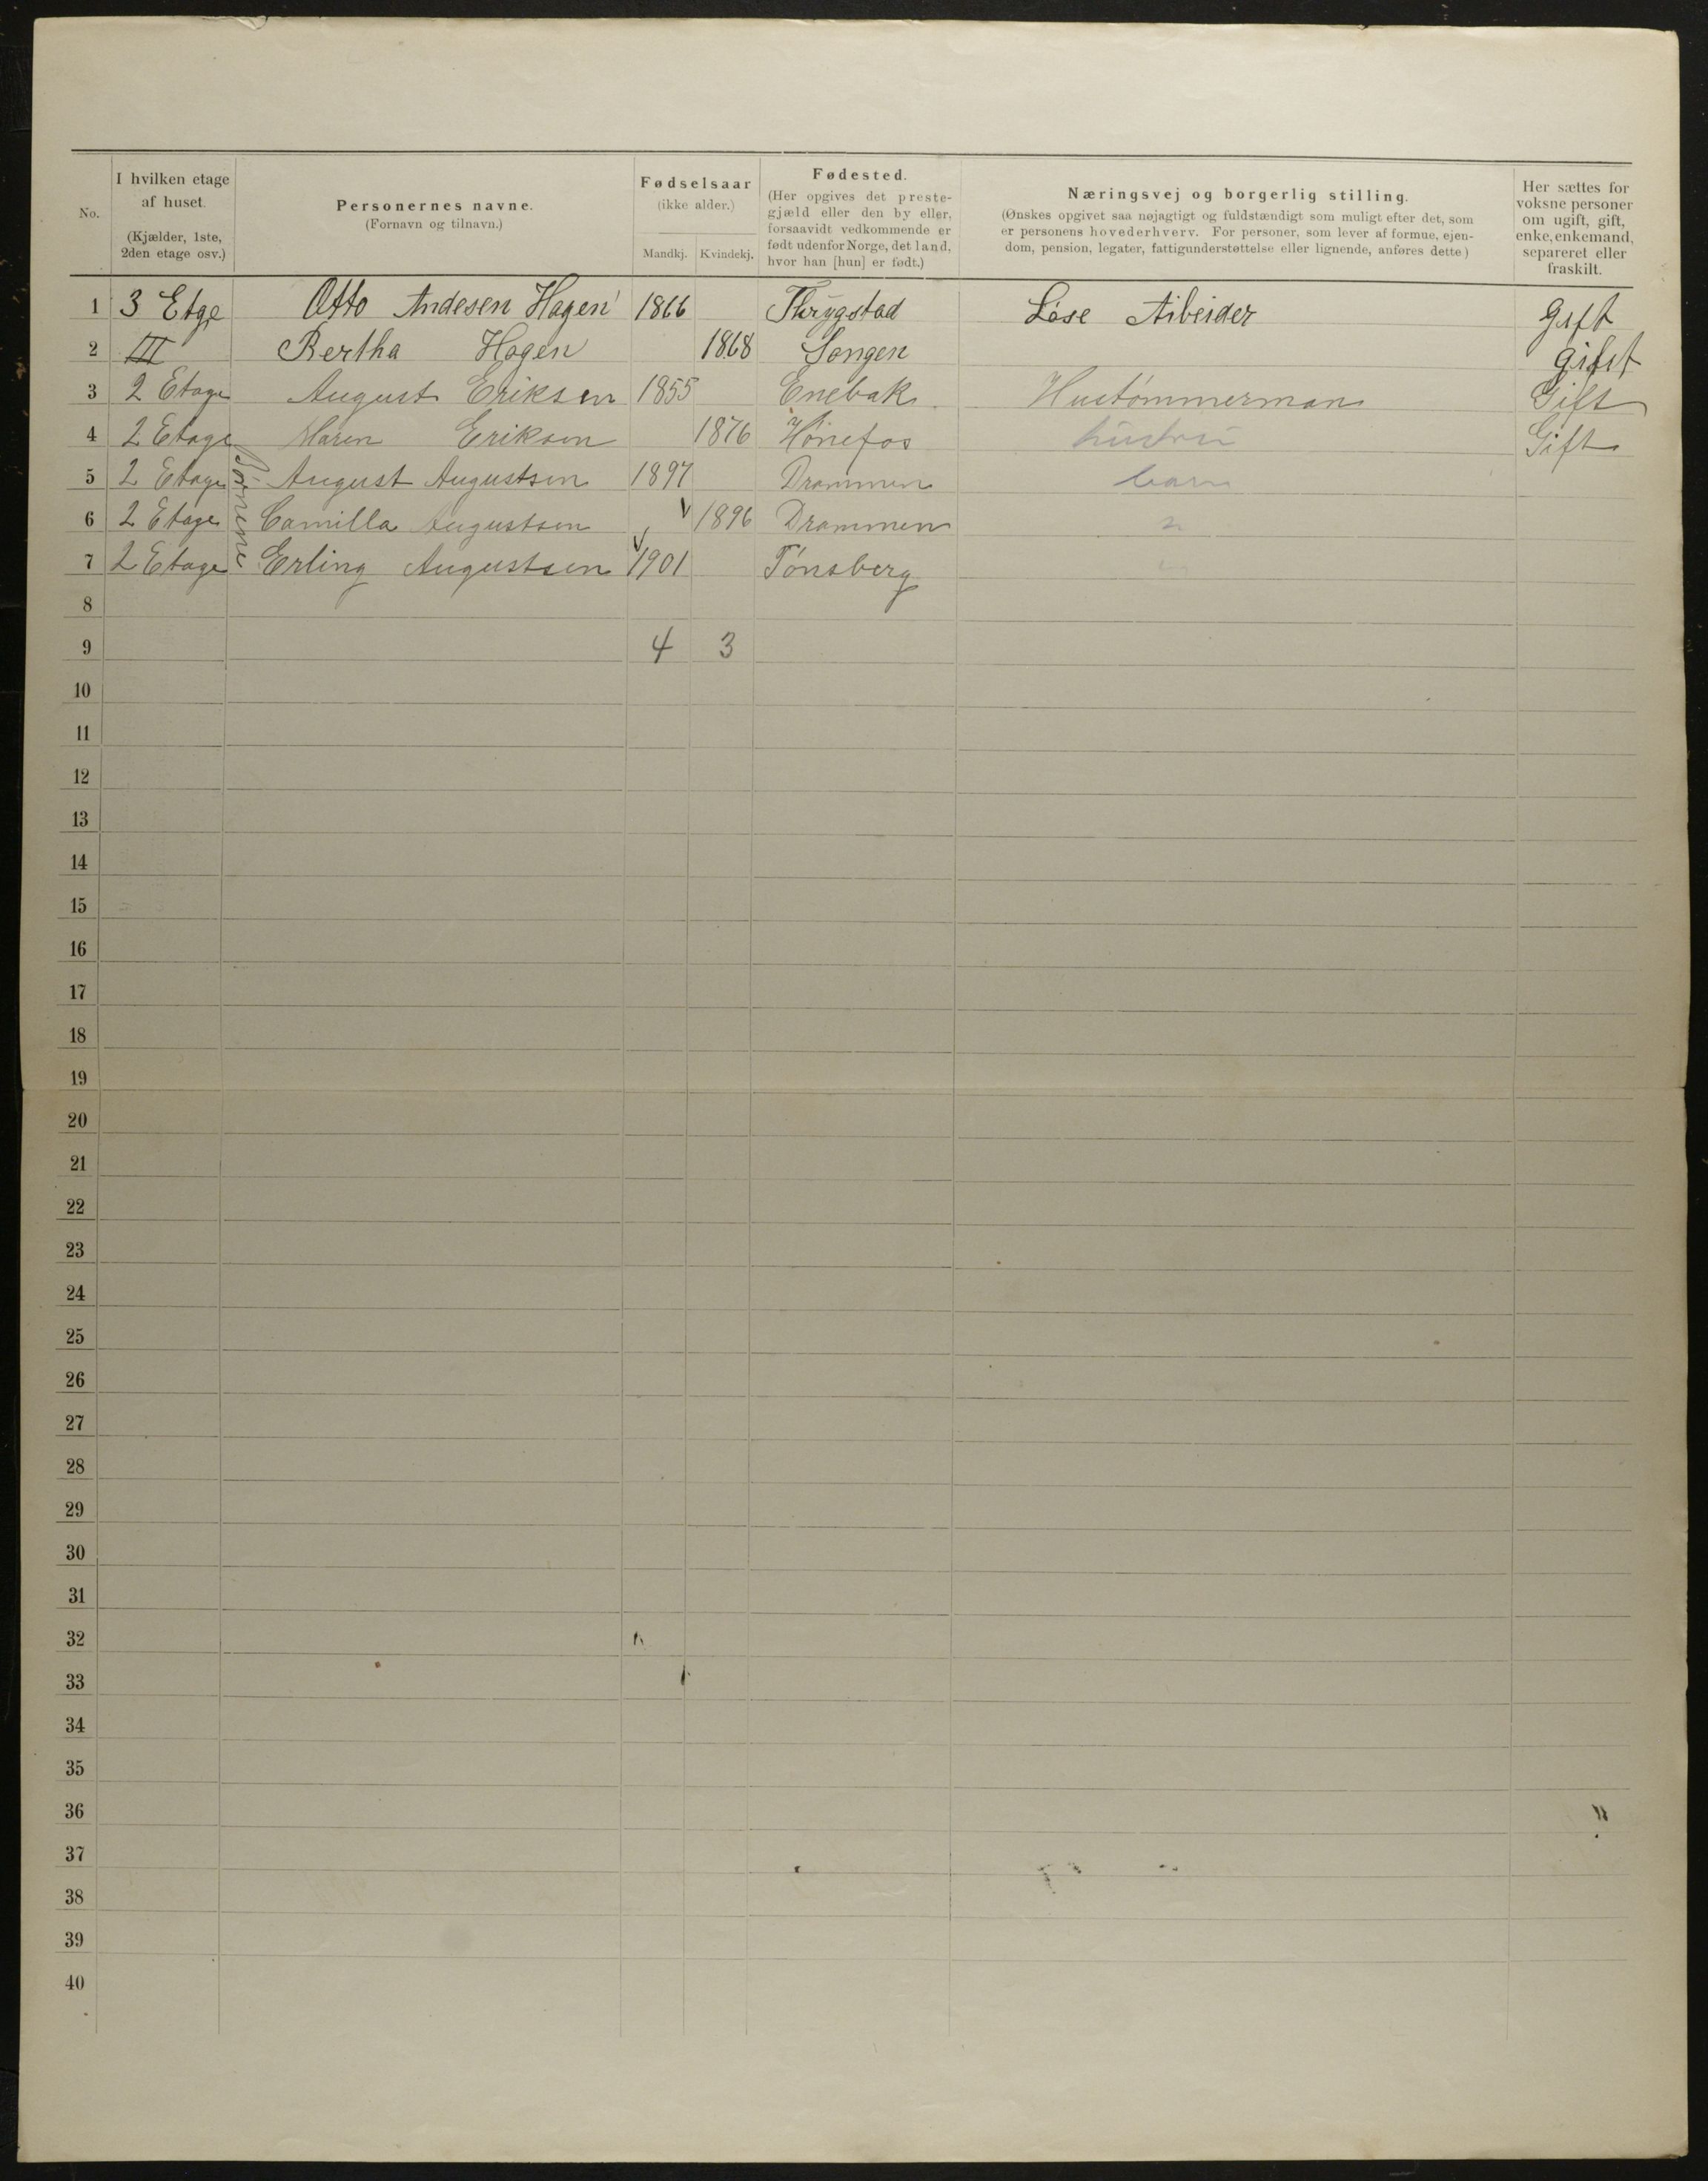 No.
I hvilken etage af huset. (Kjælder, 1ste, 2den etage osv.)
Personernes navne. (Fornavn og tilnavn.)
Fødselsaar (ikke alder.) Mandkj. Kvindekj.
Fødested. (Her opgives det prestegjæld eller den by eller, forsaavidt vedkommende er født udenfor Norge, det land, hvor han [hun] er født.)
Næringsvej og borgerlig stilling. (Ønskes opgivet saa nøjagtigt og fuldstændigt som muligt efter det, som er personens hovederhverv. For personer, som lever af formue, ejendom, pension, legater, fattigunderstøttelse eller lignende, anføres dette)
Her sættes for voksne personer om ugift, gift, enke, enkemand, separeret eller fraskilt.
1 3 Etge Otto Andesen Hagen 1866 Thrygstad Løse Aibeider gift
2 III Bertha Hagen 1868 Songen gifst
3 2 Etage August Eriksen 1855 Enebak Hustømmerman Gift
4 2 Etage Maren Eriksen 1876 Hønefos hustru Gift
Børnene
5 2 Etage August Augustsen 1897 Drammen barn
6 2 Etage Camilla Augustsen 1896 Drammen "
7 2 Etage Erling Augustsen 1901 Tønsberg "
8
9 4 3
10
11
12
13
14
15
16
17
18
19
20
21
22
23
24
25
26
27
28
29
30
31
32
33
34
35
36
37
38
39
40